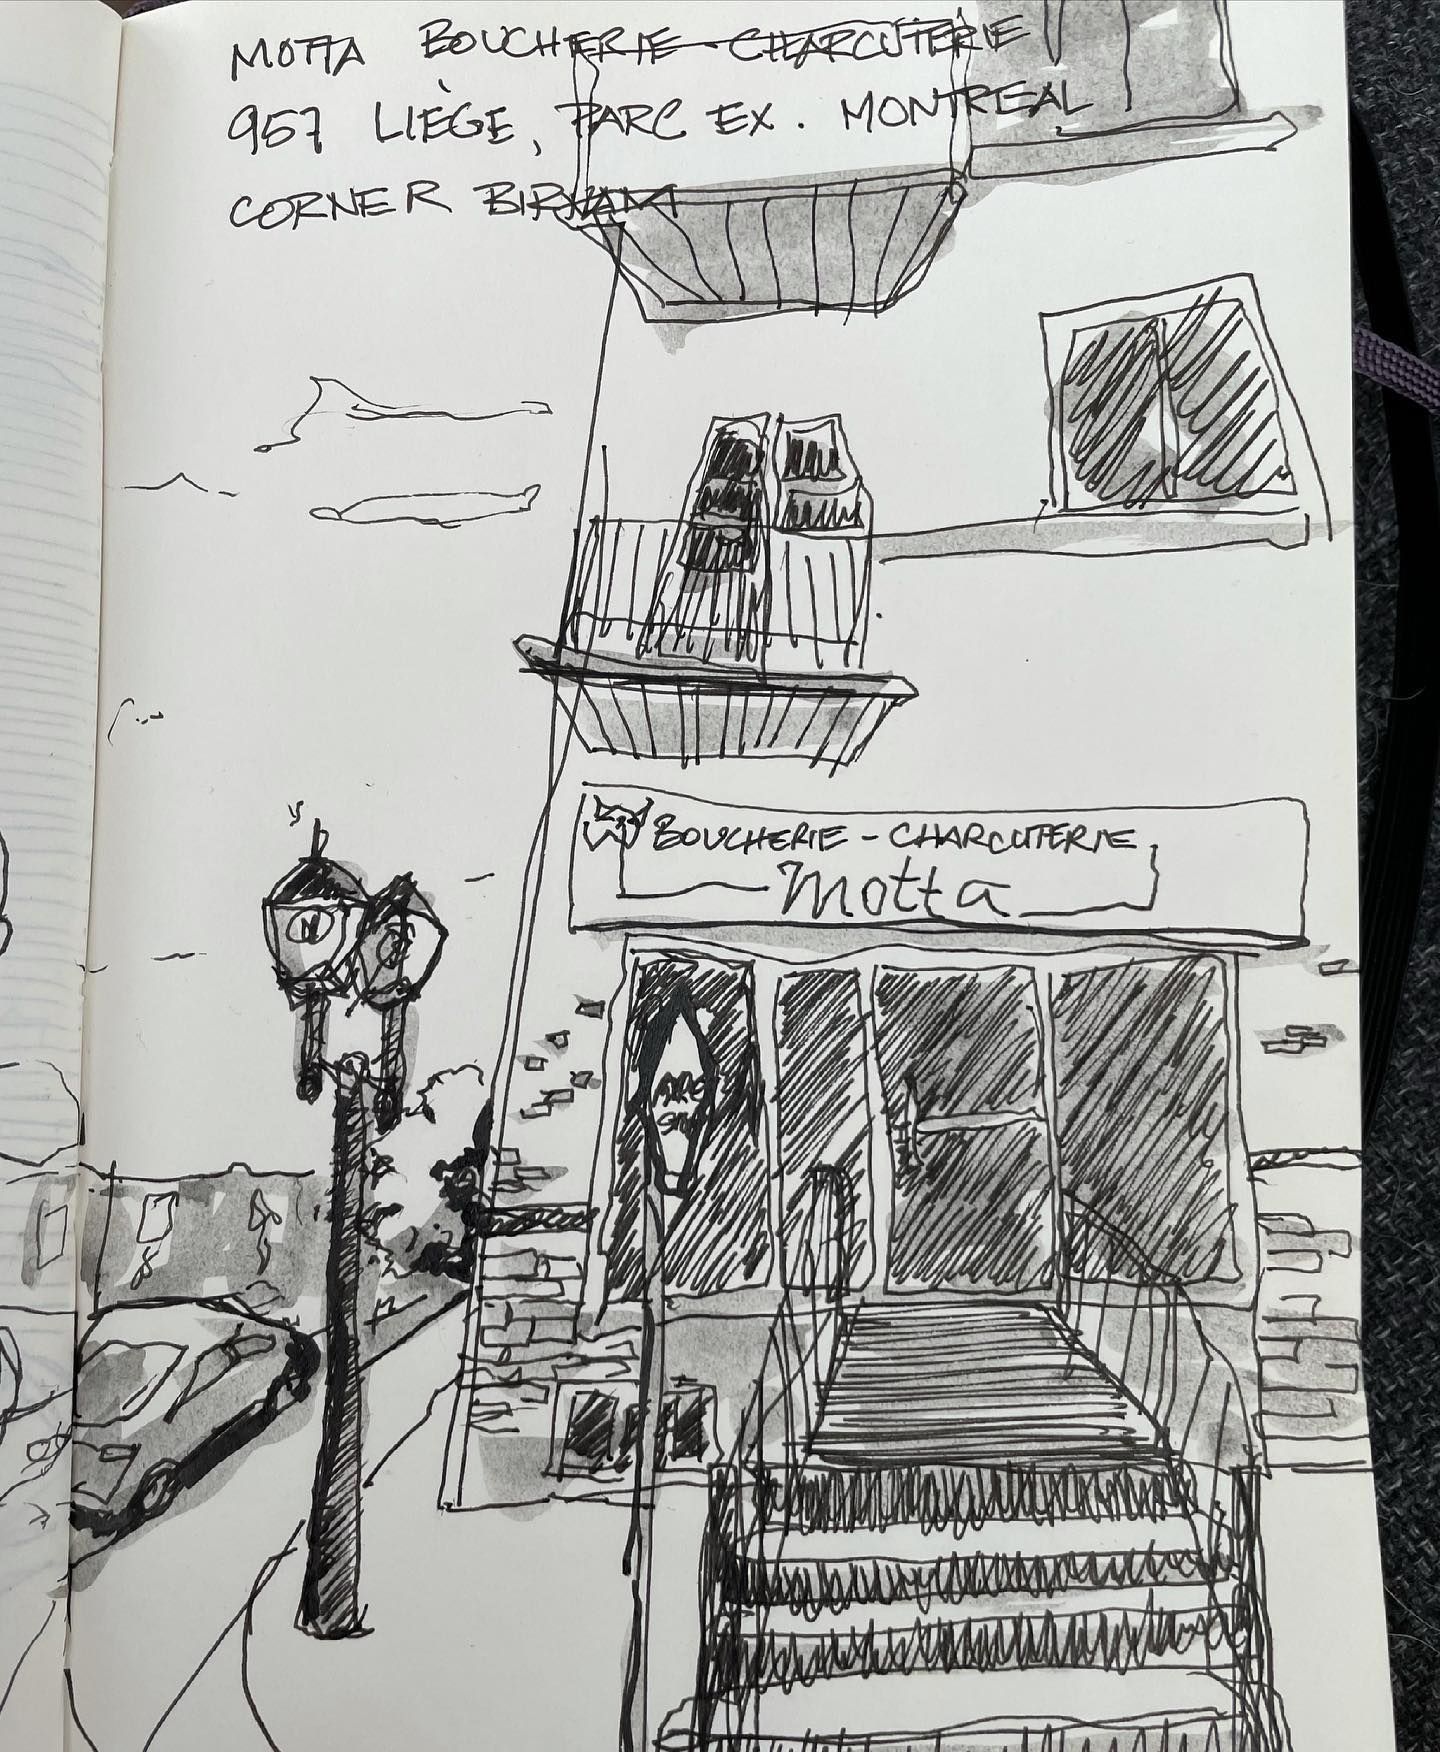 MOTTA BOUCHERIE - CHARCUTERIE
957 LIÈGE, PARC EX. MONTREAL
CORNER BIRNAM
BOUCHERIE - CHARCUTERIE
Motta